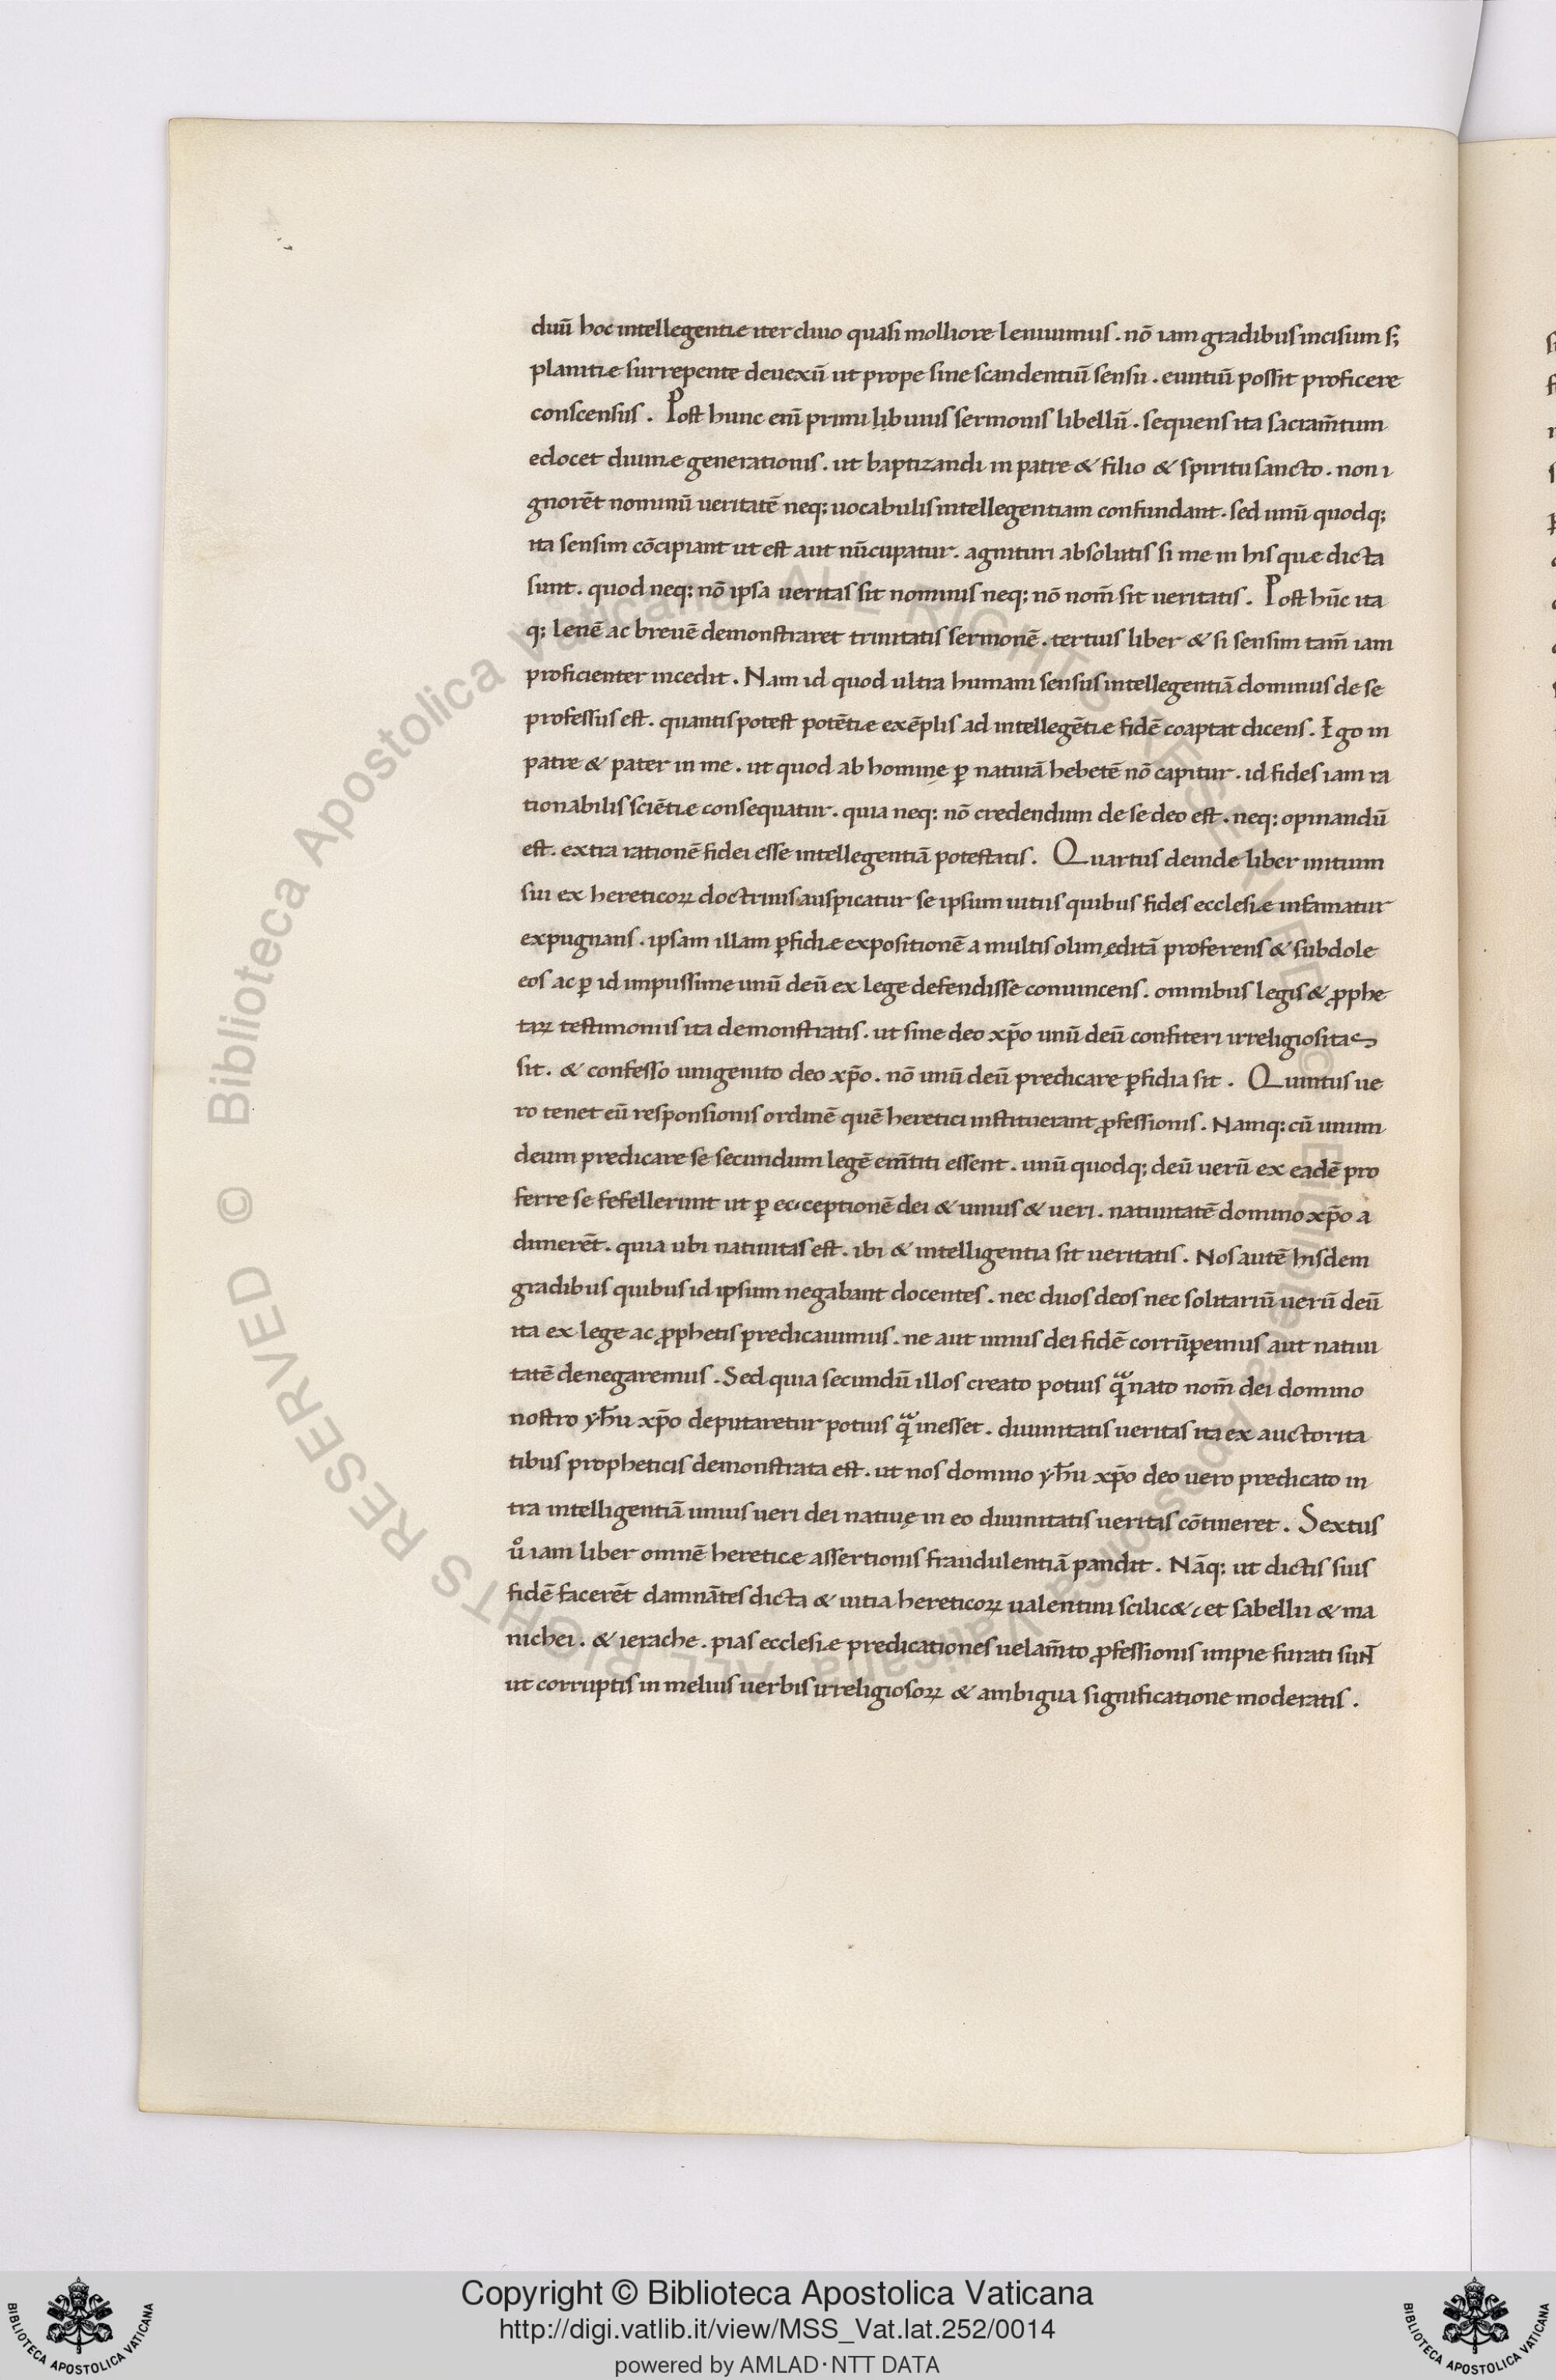 duū hoc intellegentiæ iter cliuo quasi molliore leniuimus . nō iam gradibus incisum s;
planitiæ surrepente deuexū ut prope sine scandentiū sensu . euntiū possit proficere
conscensus . Post hunc eni̅ primi libuius sermonis libellū . sequens ita sacram̅tum
edocet diuinæ generationis . ut baptizandi in patre & filio & spiritu sancto . non i
gnorēt nominū ueritatē neq; uocabulis intellegentiam confundant . sed unū quodq;
ita sensim cōcipiant ut est aut nūcupatur . agnituri absolutis si me in his quæ dicta
sunt . quod neq; nō ipsa ueritas sit nominis neq; nō nom̅ sit ueritatis . Post hūc ita
q; lenē ac breuē demonstraret trinitatis sermonē . tertius liber & si sensim tam̅ iam
proficienter incedit . Nam id quod ultra humani sensus intellegentiā dominus de se
professus est . quantis potest potētiæ exēplis ad intellegētiæ fidē coaptat dicens . Ego in
patre & pater in me . ut quod ab homine p̲ naturā hebetē nō capitur . id fides iam ra
tionabilis sciētiæ consequatur . quia neq; nō credendum de se deo est . neq; opinandū
est . extra rationē fidei esse intellegentiā potestatis . Quartus deinde liber initium
sui ex hereticoꝝ doctrinis auspicatur se ipsum uitiis quibus fides ecclesiæ infamatur
expugnans . ipsam illam ꝑfidiæ expositionē a multis olim ęditā proferens & subdole
eos ac ꝑ id impiissime unū deū ex lege defendisse conuincens . omnibus legis & ꝓphe
taꝝ testimoniis ita demonstratis . ut sine deo xp̅o unū deū confiteri irreligiositas
sit . & confesso unigenito deo xp̅o . nō unū deū predicare ꝑfidia sit . Quintus ue
ro tenet eū responsionis ordinē quē heretici instituerant ꝓfessionis . Namq; cū unum
deum predicare se secundum legē em̅titi essent . unū quodq; deū uerū ex eadē pro
ferre se fefellerunt ut ꝑ ecceptionē dei & unius & ueri . natiuitatē domino xp̅o a
dimerēt . quia ubi natiuitas est . ibi & intelligentia sit ueritatis . Nos autē hisdem
gradibus quibus id ipsum negabant docentes . nec duos deos nec solitariū uerū deū
ita ex lege ac ꝓphetis predicauimus . ne aut unius dei fidē corrūpemus aut natiui
tatē denegaremus . Sed quia secundū illos creato potius qͣ nato nom̅ dei domino
nostro yh̅u xp̅o deputaretur potius qͣ inesset . diuinitatis ueritas ita ex auctorita
tibus propheticis demonstrata est . ut nos domino yh̅u xp̅o deo uero predicato in
tra intelligentiā unius ueri dei natiuę in eo diuinitatis ueritas cōtineret . Sextus
uͦ iam liber omnē hereticæ assertionis fraudulentiā pandit . Nāq; ut dictis suis
fidē facerēt damnātes dicta & uitia hereticoꝝ ualentini scilic& et sabellii & ma
nichei . & ierache . pias ecclesiæ predicationes uelam̅to ꝓfessionis impie furati sunt
ut corruptis in melius uerbis irreligiosoꝝ & ambigua significatione moderatis .
Biblioteca Apostolica Vaticana ALL RIGHTS RESERVED © Biblioteca Apostolica Vaticana ALL RIGHTS RESERVED ©
Copyright © Biblioteca Apostolica Vaticana
http://digi.vatlib.it/view/MSS_Vat.lat.252/0014
powered by AMLAD·NTT DATA
BIBLIOTECA APOSTOLICA VATICANA
BIBLIOTECA APOSTOLICA VATICANA